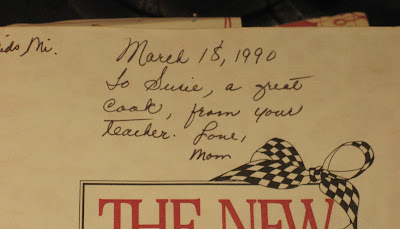 ids Mi.
March 18, 1990
To Susie, a great
cook, from your
teacher. Love,
Mom
THE NEW